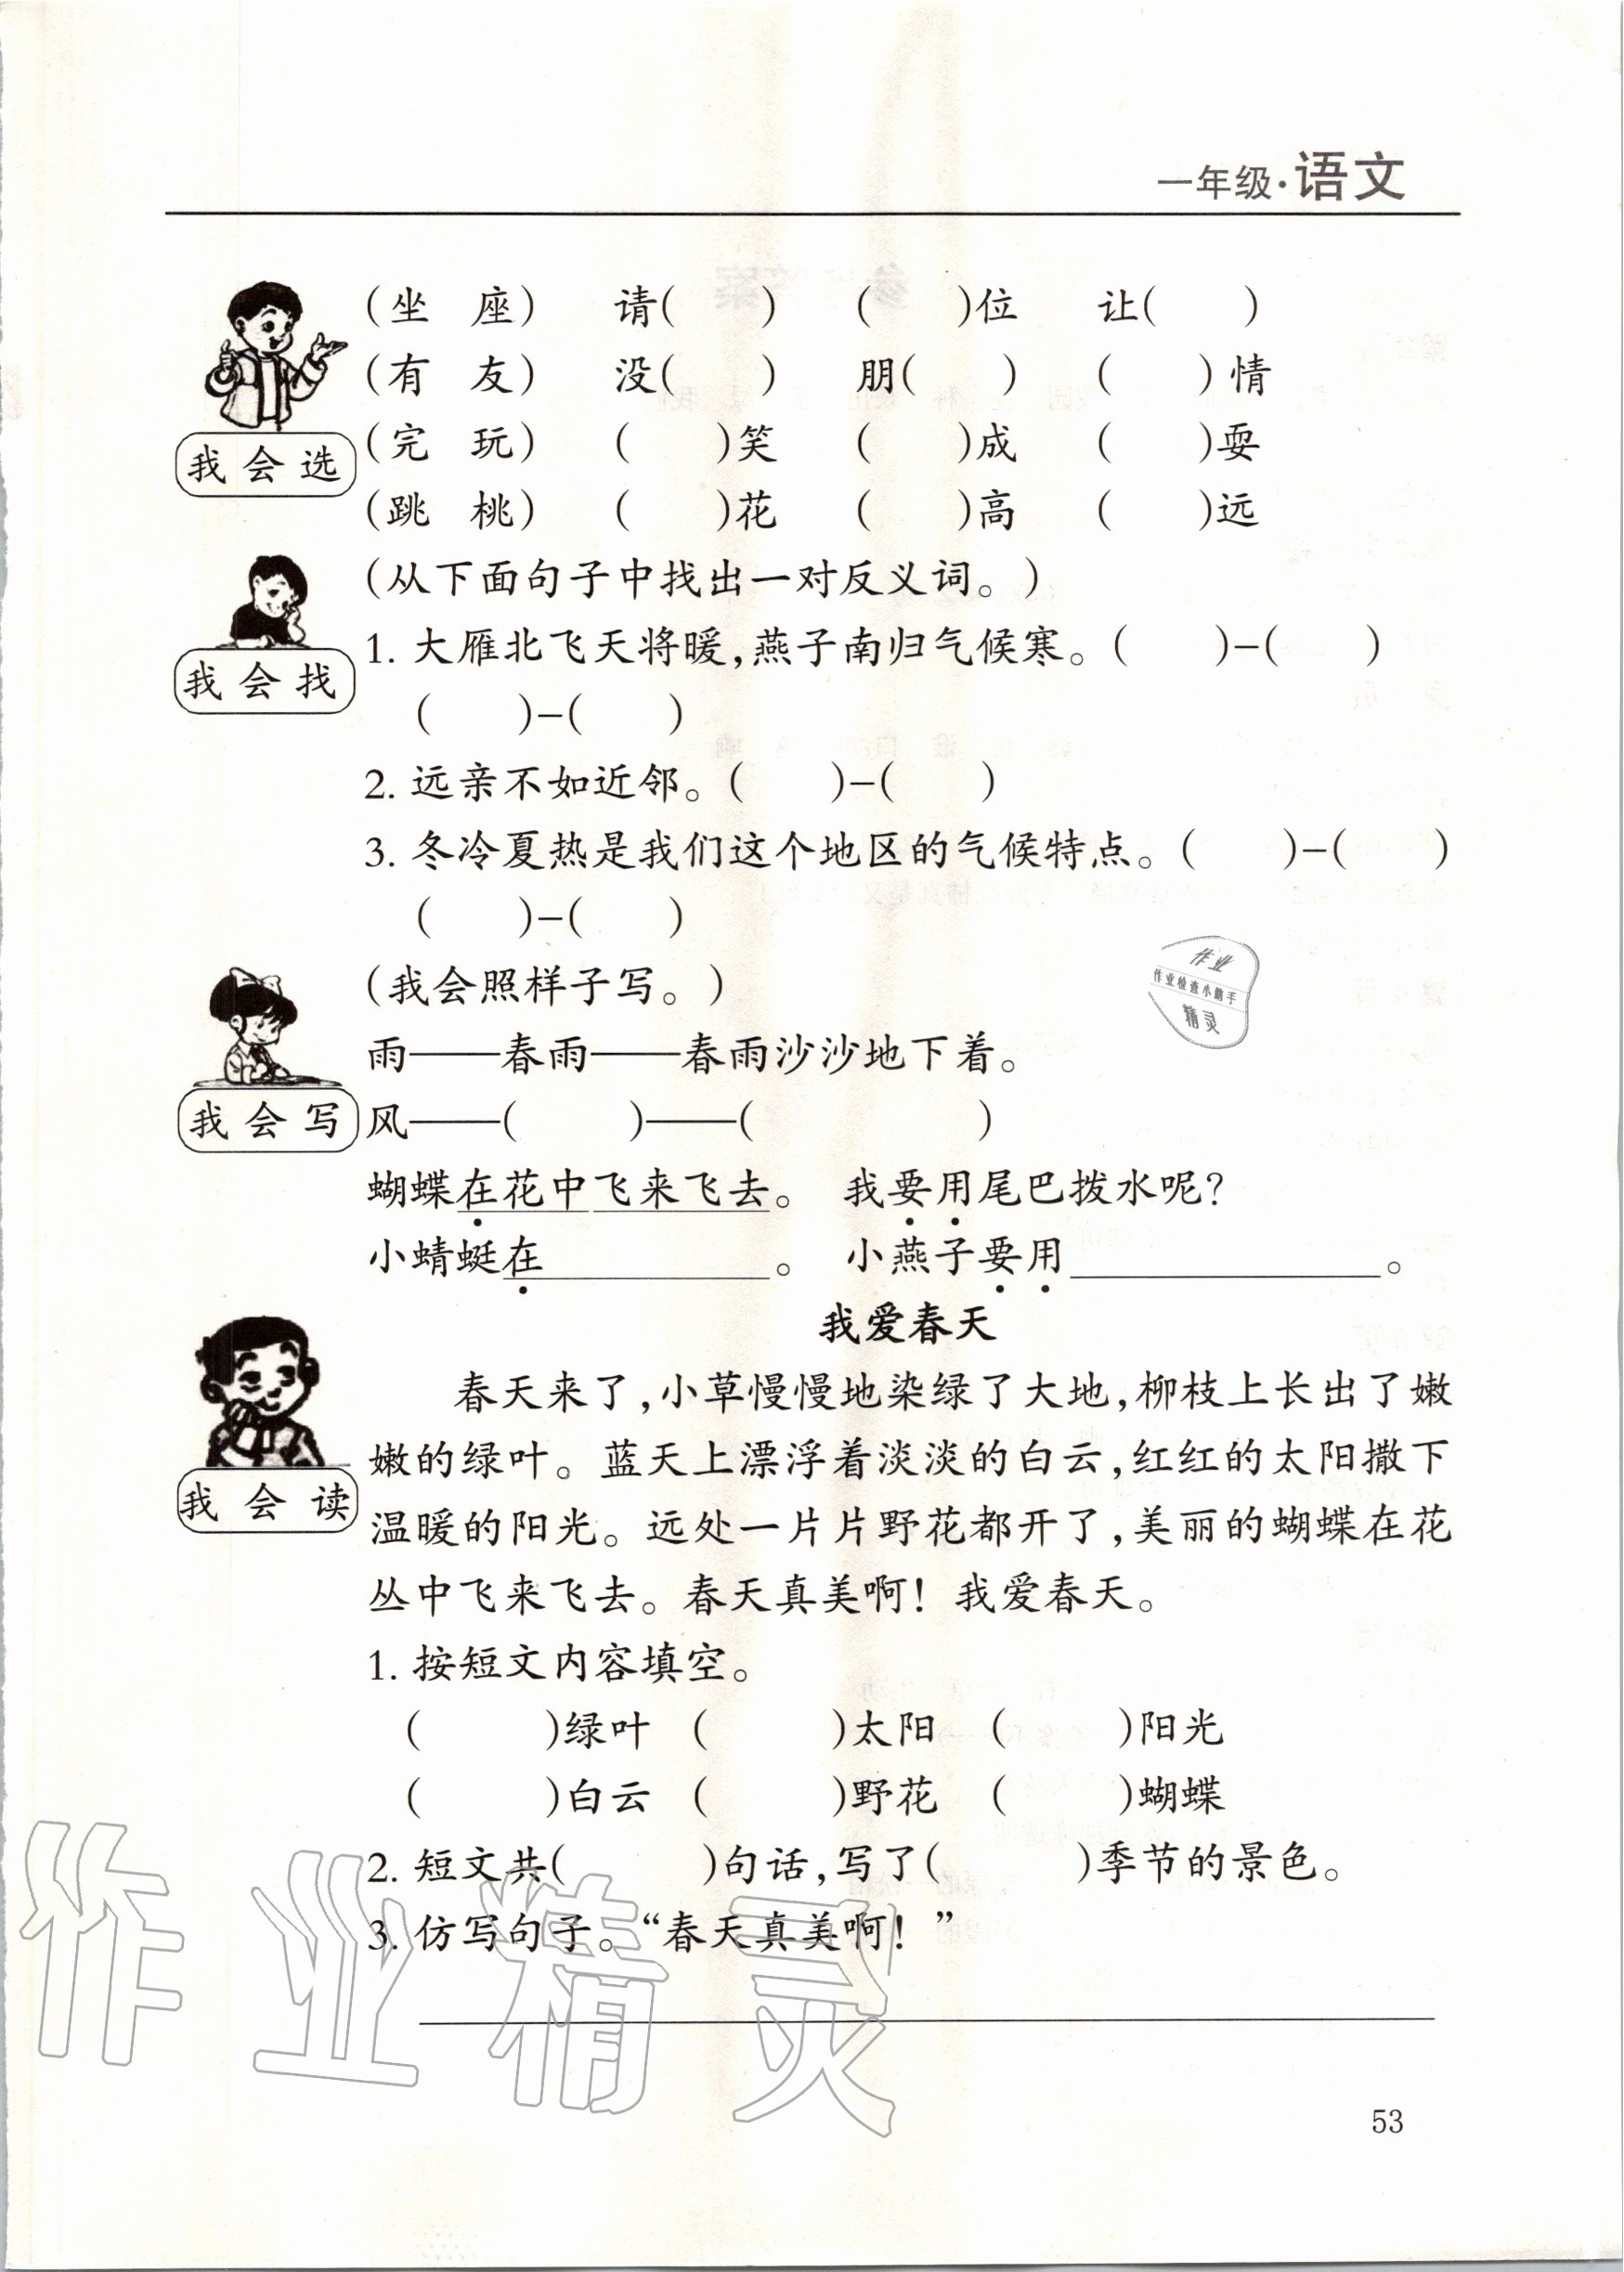 一年级·语文
(坐 座) 请( ) ( )位 让( )
(有 友) 没( ) 朋( ) ( )情
(完 玩) ( )笑 ( )成 ( )耍
(跳 桃) ( )花 ( )高 ( )远
我会选
(从下面句子中找出一对反义词。)
1. 大雁北飞天将暖,燕子南归气候寒。( )-( )
( )-( )
2. 远亲不如近邻。( )-( )
3. 冬冷夏热是我们这个地区的气候特点。( )-( )
( )-( )
我会找
(我会照样子写。)
雨——春雨——春雨沙沙地下着。
风——( )——( )
我会写
蝴蝶在花中飞来飞去。 我要用尾巴拨水呢?
小蜻蜓在________。 小燕子要用________。
我爱春天
春天来了,小草慢慢地染绿了大地,柳枝上长出了嫩
嫩的绿叶。蓝天上漂浮着淡淡的白云,红红的太阳撒下
温暖的阳光。远处一片片野花都开了,美丽的蝴蝶在花
丛中飞来飞去。春天真美啊! 我爱春天。
我会读
1. 按短文内容填空。
( )绿叶 ( )太阳 ( )阳光
( )白云 ( )野花 ( )蝴蝶
2. 短文共( )句话,写了( )季节的景色。
3. 仿写句子。“春天真美啊!”
53
作业
作业检查小助手
精灵
作业精灵